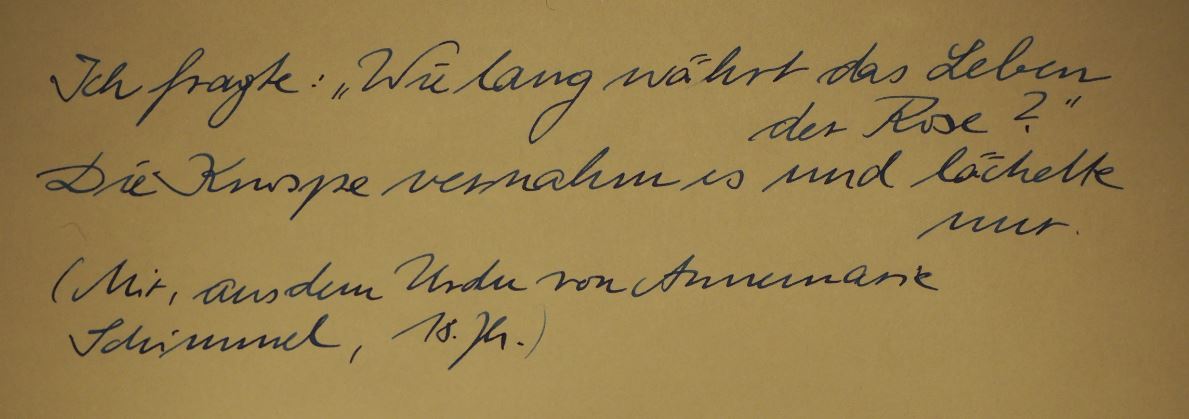 Ich fragte: „Wie lang währt das Leben
der Rose?“
Die Knospe vernahm es und lächelte
nur.
(Mir, aus dem Urdu von Annemarie
Schimmel, 18. Jh.)